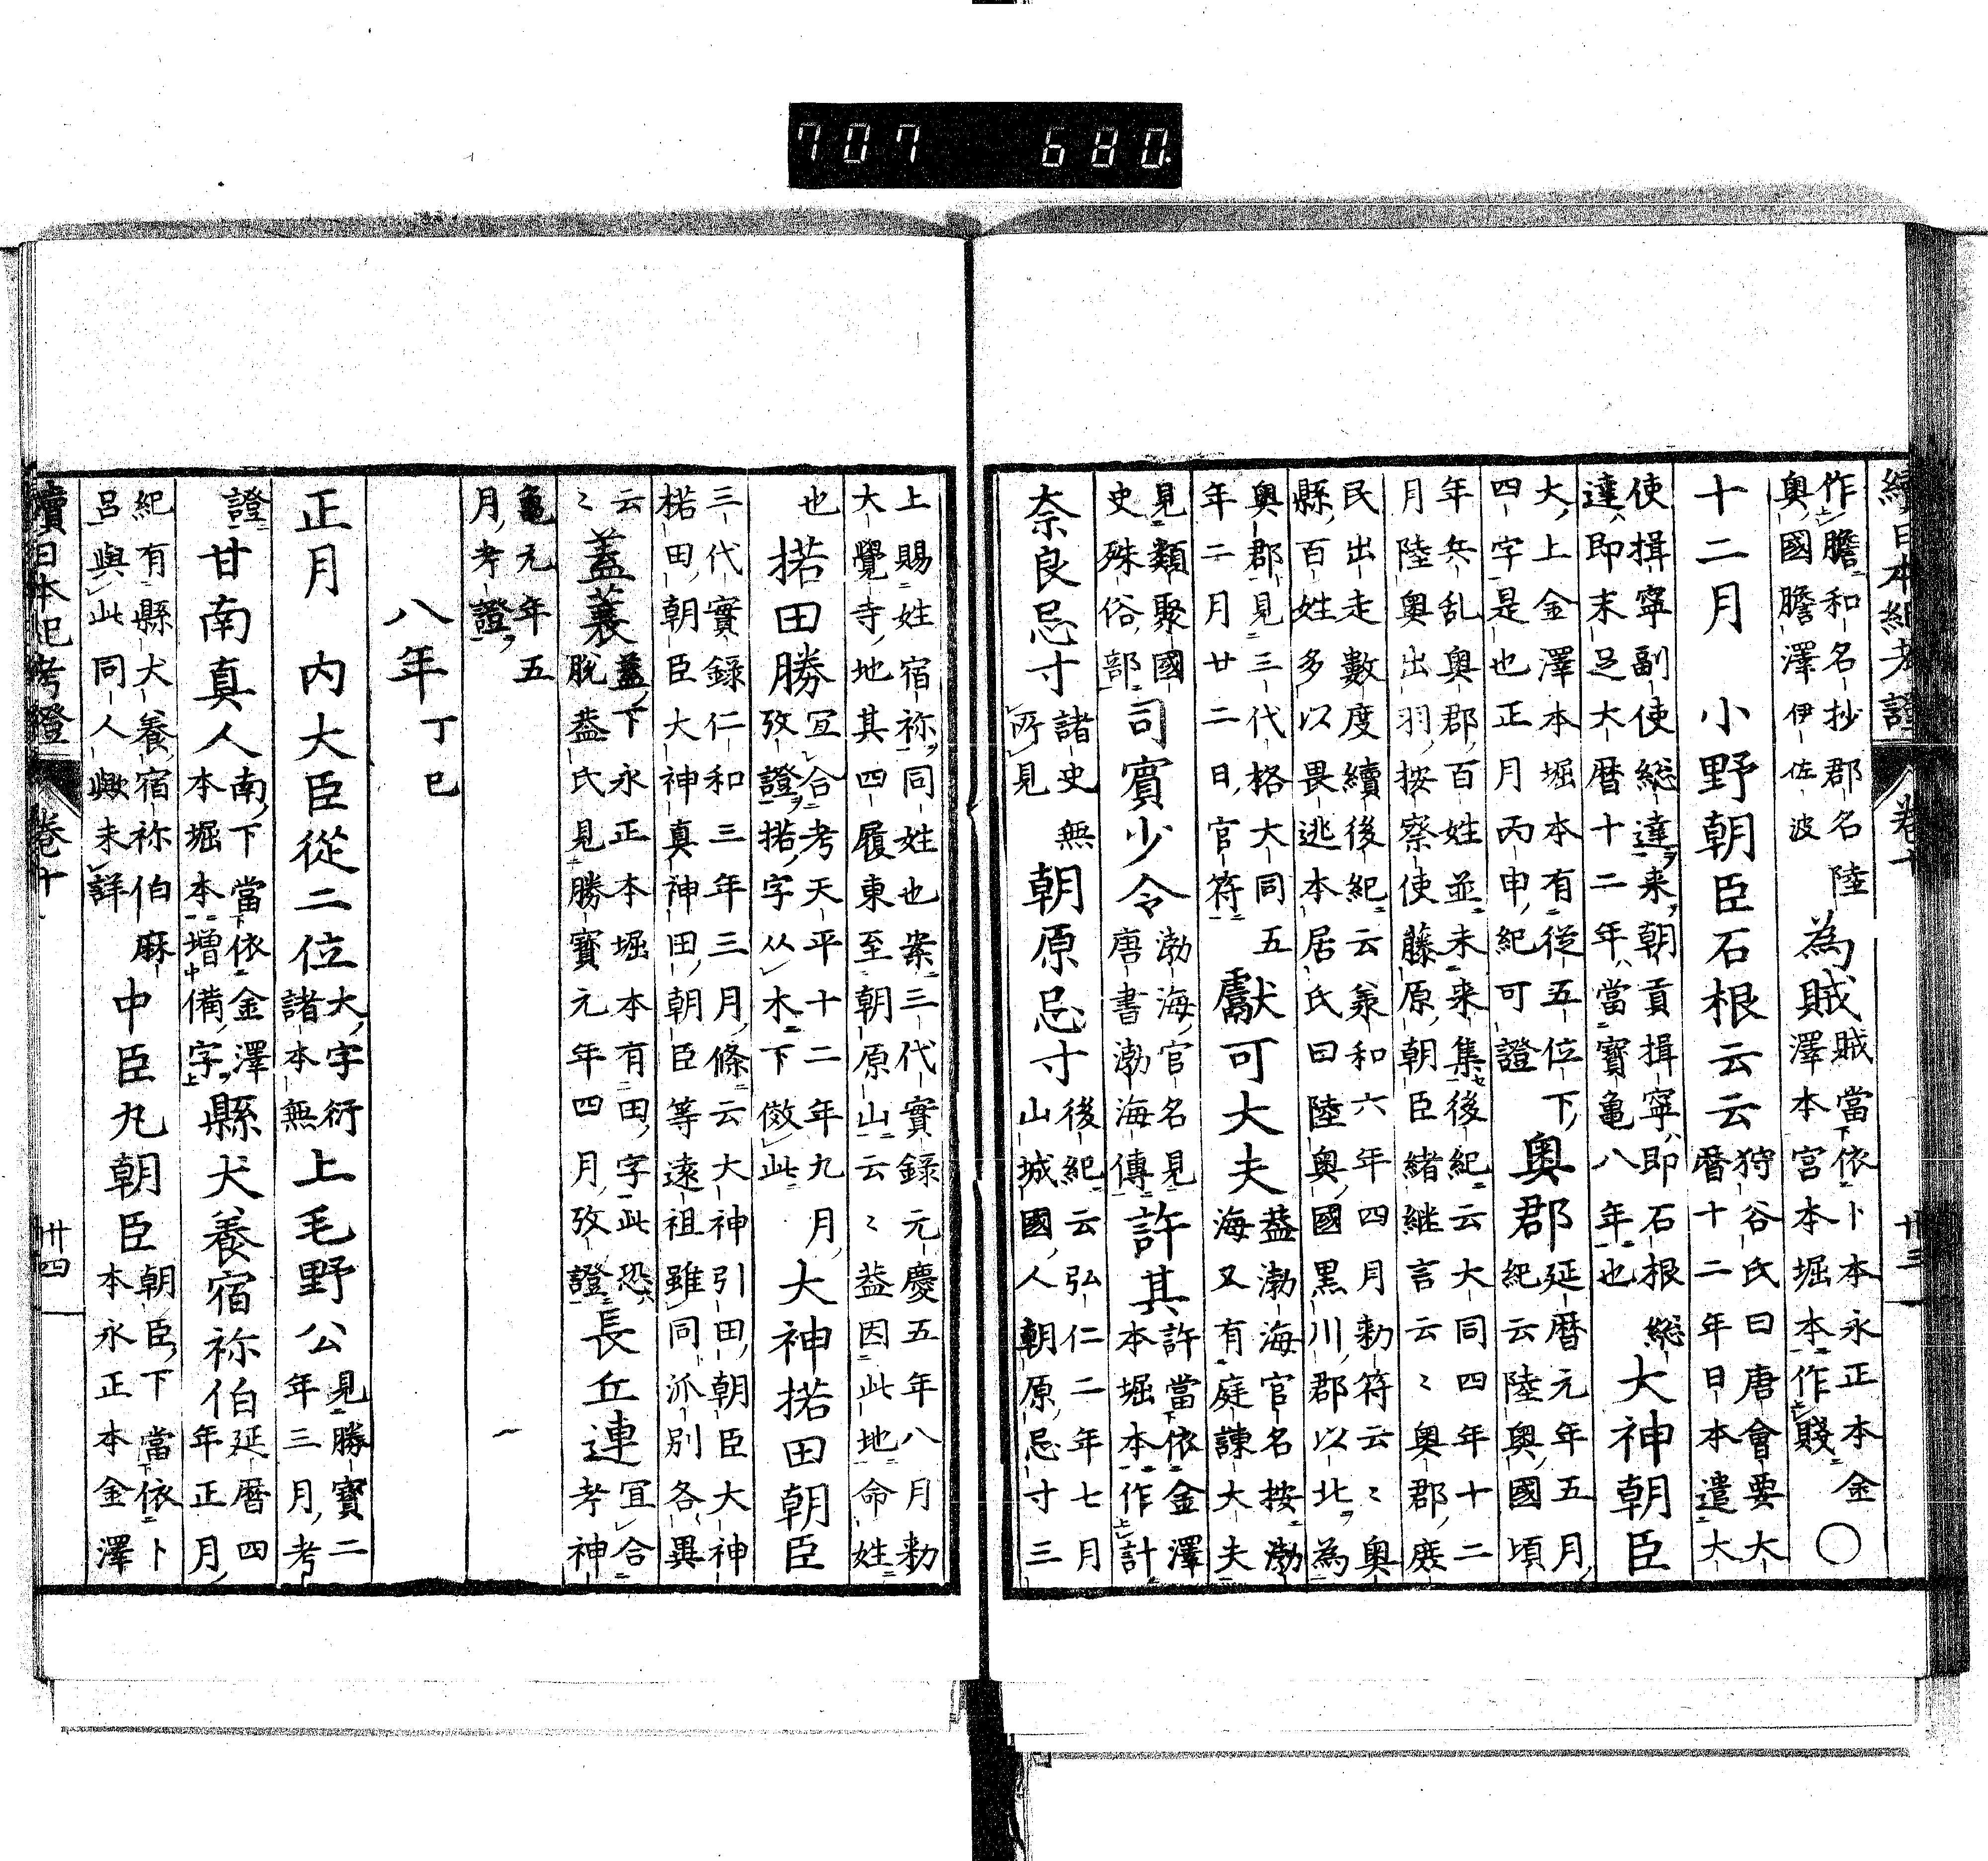 續日本紀考證 卷十 卅三
作膽和名抄郡名陸
奧國膽澤伊佐波
為賊
賊當依卜本永正本金
澤本宮本堀本作賤
○
十二月 小野朝臣石根云云
狩谷氏曰唐會要大
暦十二年日本遣大
使揖寧副使総達来朝貢揖寧即石根総
達即末足大暦十二年當寶龜八年也
大神朝臣
大上金澤本堀本有從五位下
四字是也正月丙申紀可證
奧郡
延暦元年五月
紀云陸奧國頃
年兵乱奧郡百姓並未来集後紀云大同四年十二
月陸奧出羽按察使藤原朝臣緒継言云〻奧郡庻
民出走數度續後紀云羕和六年四月勅符云〻奧
縣百姓多以畏逃本居氏曰陸奧國黒川郡以北為
奧郡見三代格大同五
年二月廿二日官符
獻可大夫
葢渤海官名按渤
海又有庭諫大夫
見類聚國
史殊俗部
司賓少令
渤海官名見
唐書渤海傳
許其
許當依金澤
本堀本作計
奈良忌寸
諸史無
所見
朝原忌寸
後紀云弘仁二年七月
山城國人朝原忌寸三
上賜姓宿祢同姓也案三代實録元慶五年八月勅
大覺寺地其四履東至朝原山云〻葢因此地命姓
也
掿田勝
宜合考天平十二年九月
攷證掿字从木下俲此
大神掿田朝臣
三代實録仁和三年三月條云大神引田朝臣大神
楉田朝臣大神真神田朝臣等遠祖雖同派別各異
云
〻
蓋蓑
蓋下永正本堀本有田字此恐
脱葢氏見勝寶元年四月攷證
長丘連
宜合
考神
龜元年五
月考證
八年 丁巳
正月 内大臣從二位
大字衍
諸本無
上毛野公
見勝寶二
年三月考
證
甘南真人
南下當依金澤
本堀本増備字
縣犬養宿祢伯
延暦四
年正月
紀有縣犬養宿祢伯麻
呂與此同人歟未詳
中臣丸朝臣
朝臣下當依卜
本永正本金澤
續日本紀考證 卷十 卅四
707 680